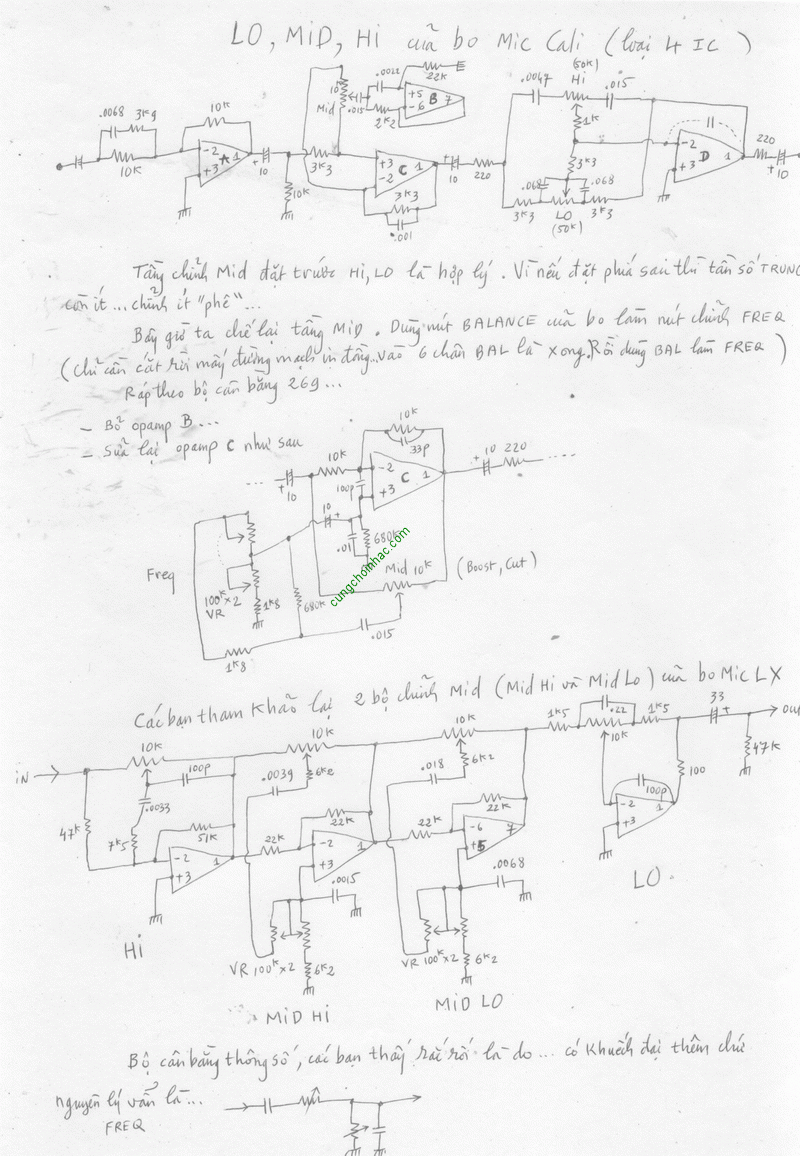 LO, MiD, Hi của bo Mic Cali (loại 4 IC)
.0068 3K9
10K
10K
-2
+3
A 1
+ 10
10K
3K3
10K
Mid
.015
.0022
22K
+5
-6
B 7
2K2
+3
-2
C 1
3K3
.001
+ 10
220
(50K)
Hi
.0047
.015
1K
3K3
.068
.068
3K3
LO
3K3
(50K)
-2
+3
D 1
220
+ 10
Tầng chỉnh Mid đặt trước Hi, LO là hợp lý. Vì nếu đặt phía sau thì tần số TRUNG
còn ít... chỉnh ít "phê"...
Bây giờ ta chế lại tầng MID. Dùng nút BALANCE của bo làm nút chỉnh FREQ
(chỉ cần cắt rời mấy đường mạch in đồng... vào 6 chân BAL là xong. Rồi dùng BAL làm FREQ)
Ráp theo bộ cân bằng 269...
- Bỏ opamp B...
- Sửa lại opamp C như sau
10K
33p
10K
... + 10
100p
-2
+3
C 1
+ 10 220 ....
10 +
.01
680K
Mid 10K
(Boost, Cut)
Freq
100K x2
VR
1K8
680K
.015
1K8
cungchoinhac.com
Các bạn tham khảo lại 2 bộ chỉnh Mid (Mid Hi và Mid Lo) của bo Mic LX
iN
10K
100p
.0033
47K
7K5
51K
-2
+3
1
Hi
10K
.0039
6K2
22K
22K
-2
+3
1
.0015
VR 100K x2
6K2
MiD Hi
10K
.018
6K2
22K
22K
-6
+5
7
.0068
VR 100K x2
6K2
MiD LO
1K5
.22
10K
1K5
33 +
out
47K
100
100p
-2
+3
1
LO
Bộ cân bằng thông số, các bạn thấy rắc rối là do... có khuếch đại thêm chứ
nguyên lý vẫn là...
FREQ